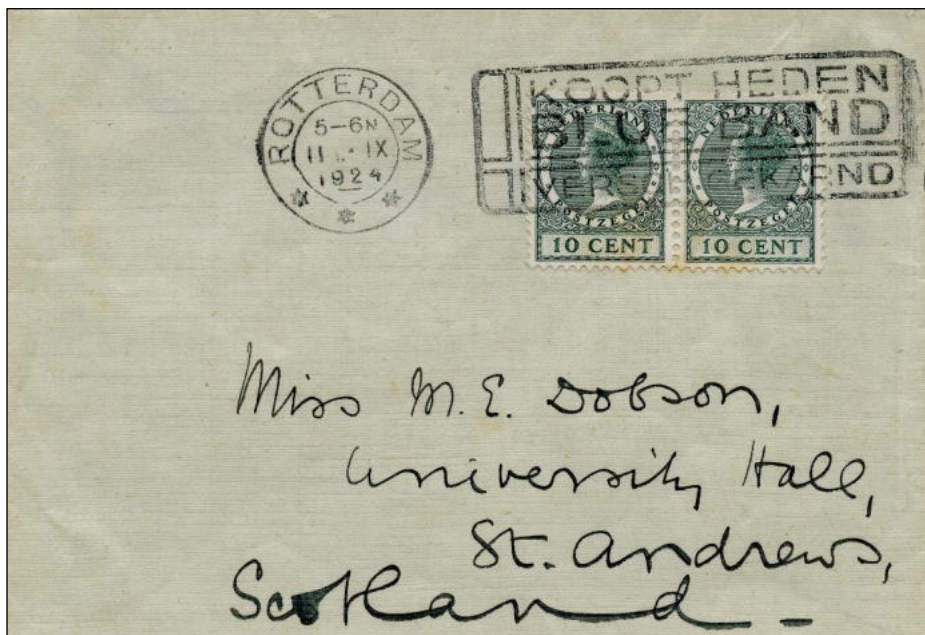 ROTTERDAM
5-6N
11 IX
1924
KOOPT HEDEN
BLUE BAND
VERSCH GEKARND
NEDERLAND
POSTZEGEL
10 CENT
NEDERLAND
POSTZEGEL
10 CENT
Miss M. E. Dobson,
University Hall,
St. Andrews,
Scotland -